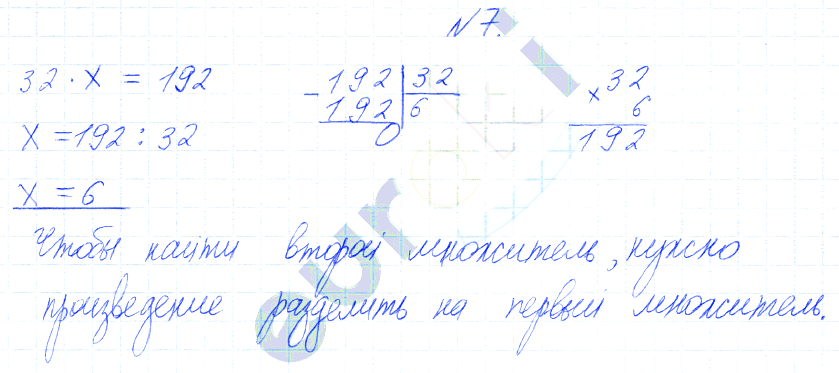 N7.
32 · x = 192
x = 192 : 32
x = 6
- 192 | 32
192 | 6
0
x 32
6
192
Чтобы найти второй множитель, нужно
произведение разделить на первый множитель.
euroki